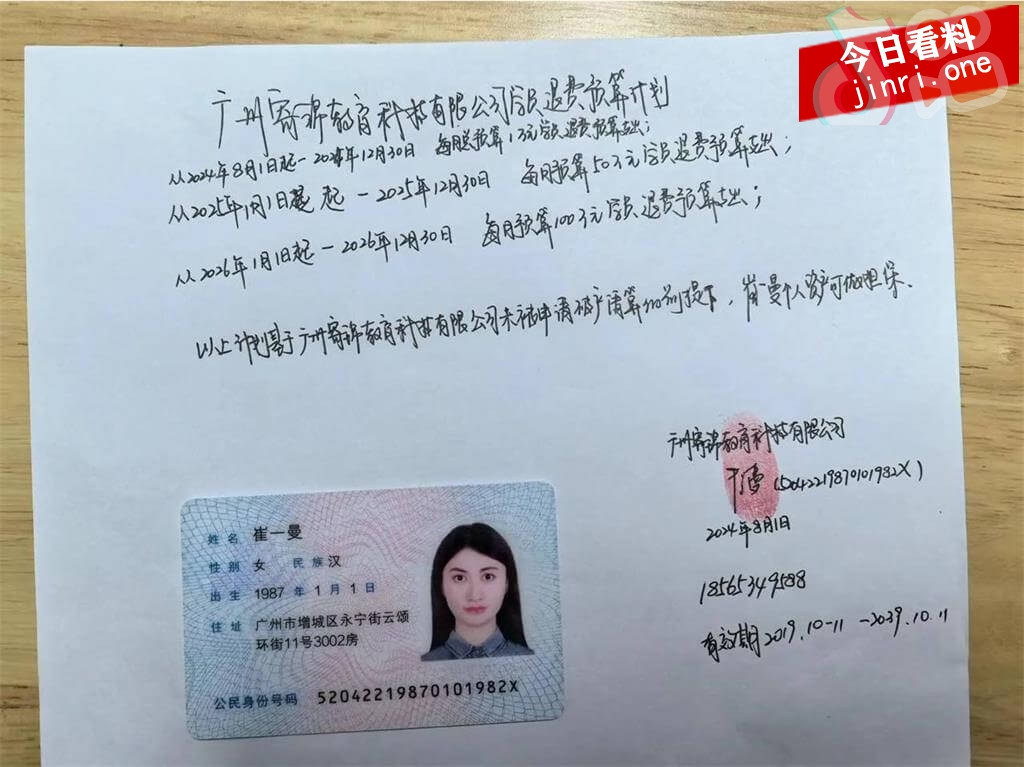 今日看料
jinri.one
广州寄锦教育科技有限公司学员退费预算计划
从2024年8月1日起-2024年12月30日 每月总预算1万元学员退费预算支出；
从2025年1月1日起-2025年12月30日 每月预算50万元学员退费预算支出；
从2026年1月1日起-2026年12月30日 每月预算100万元学员退费预算支出；
以上计划基于广州寄锦教育科技有限公司未被申请破产清算的前提下，崔一曼个人资产可做担保.
广州寄锦教育科技有限公司
(52042219870101982X)
2024年8月1日
18565349588
有效期2019.10-11-2039.10.11
姓名 崔一曼
性别 女 民族 汉
出生 1987年1月1日
住址 广州市增城区永宁街云颂
环街11号3002房
公民身份号码 52042219870101982X